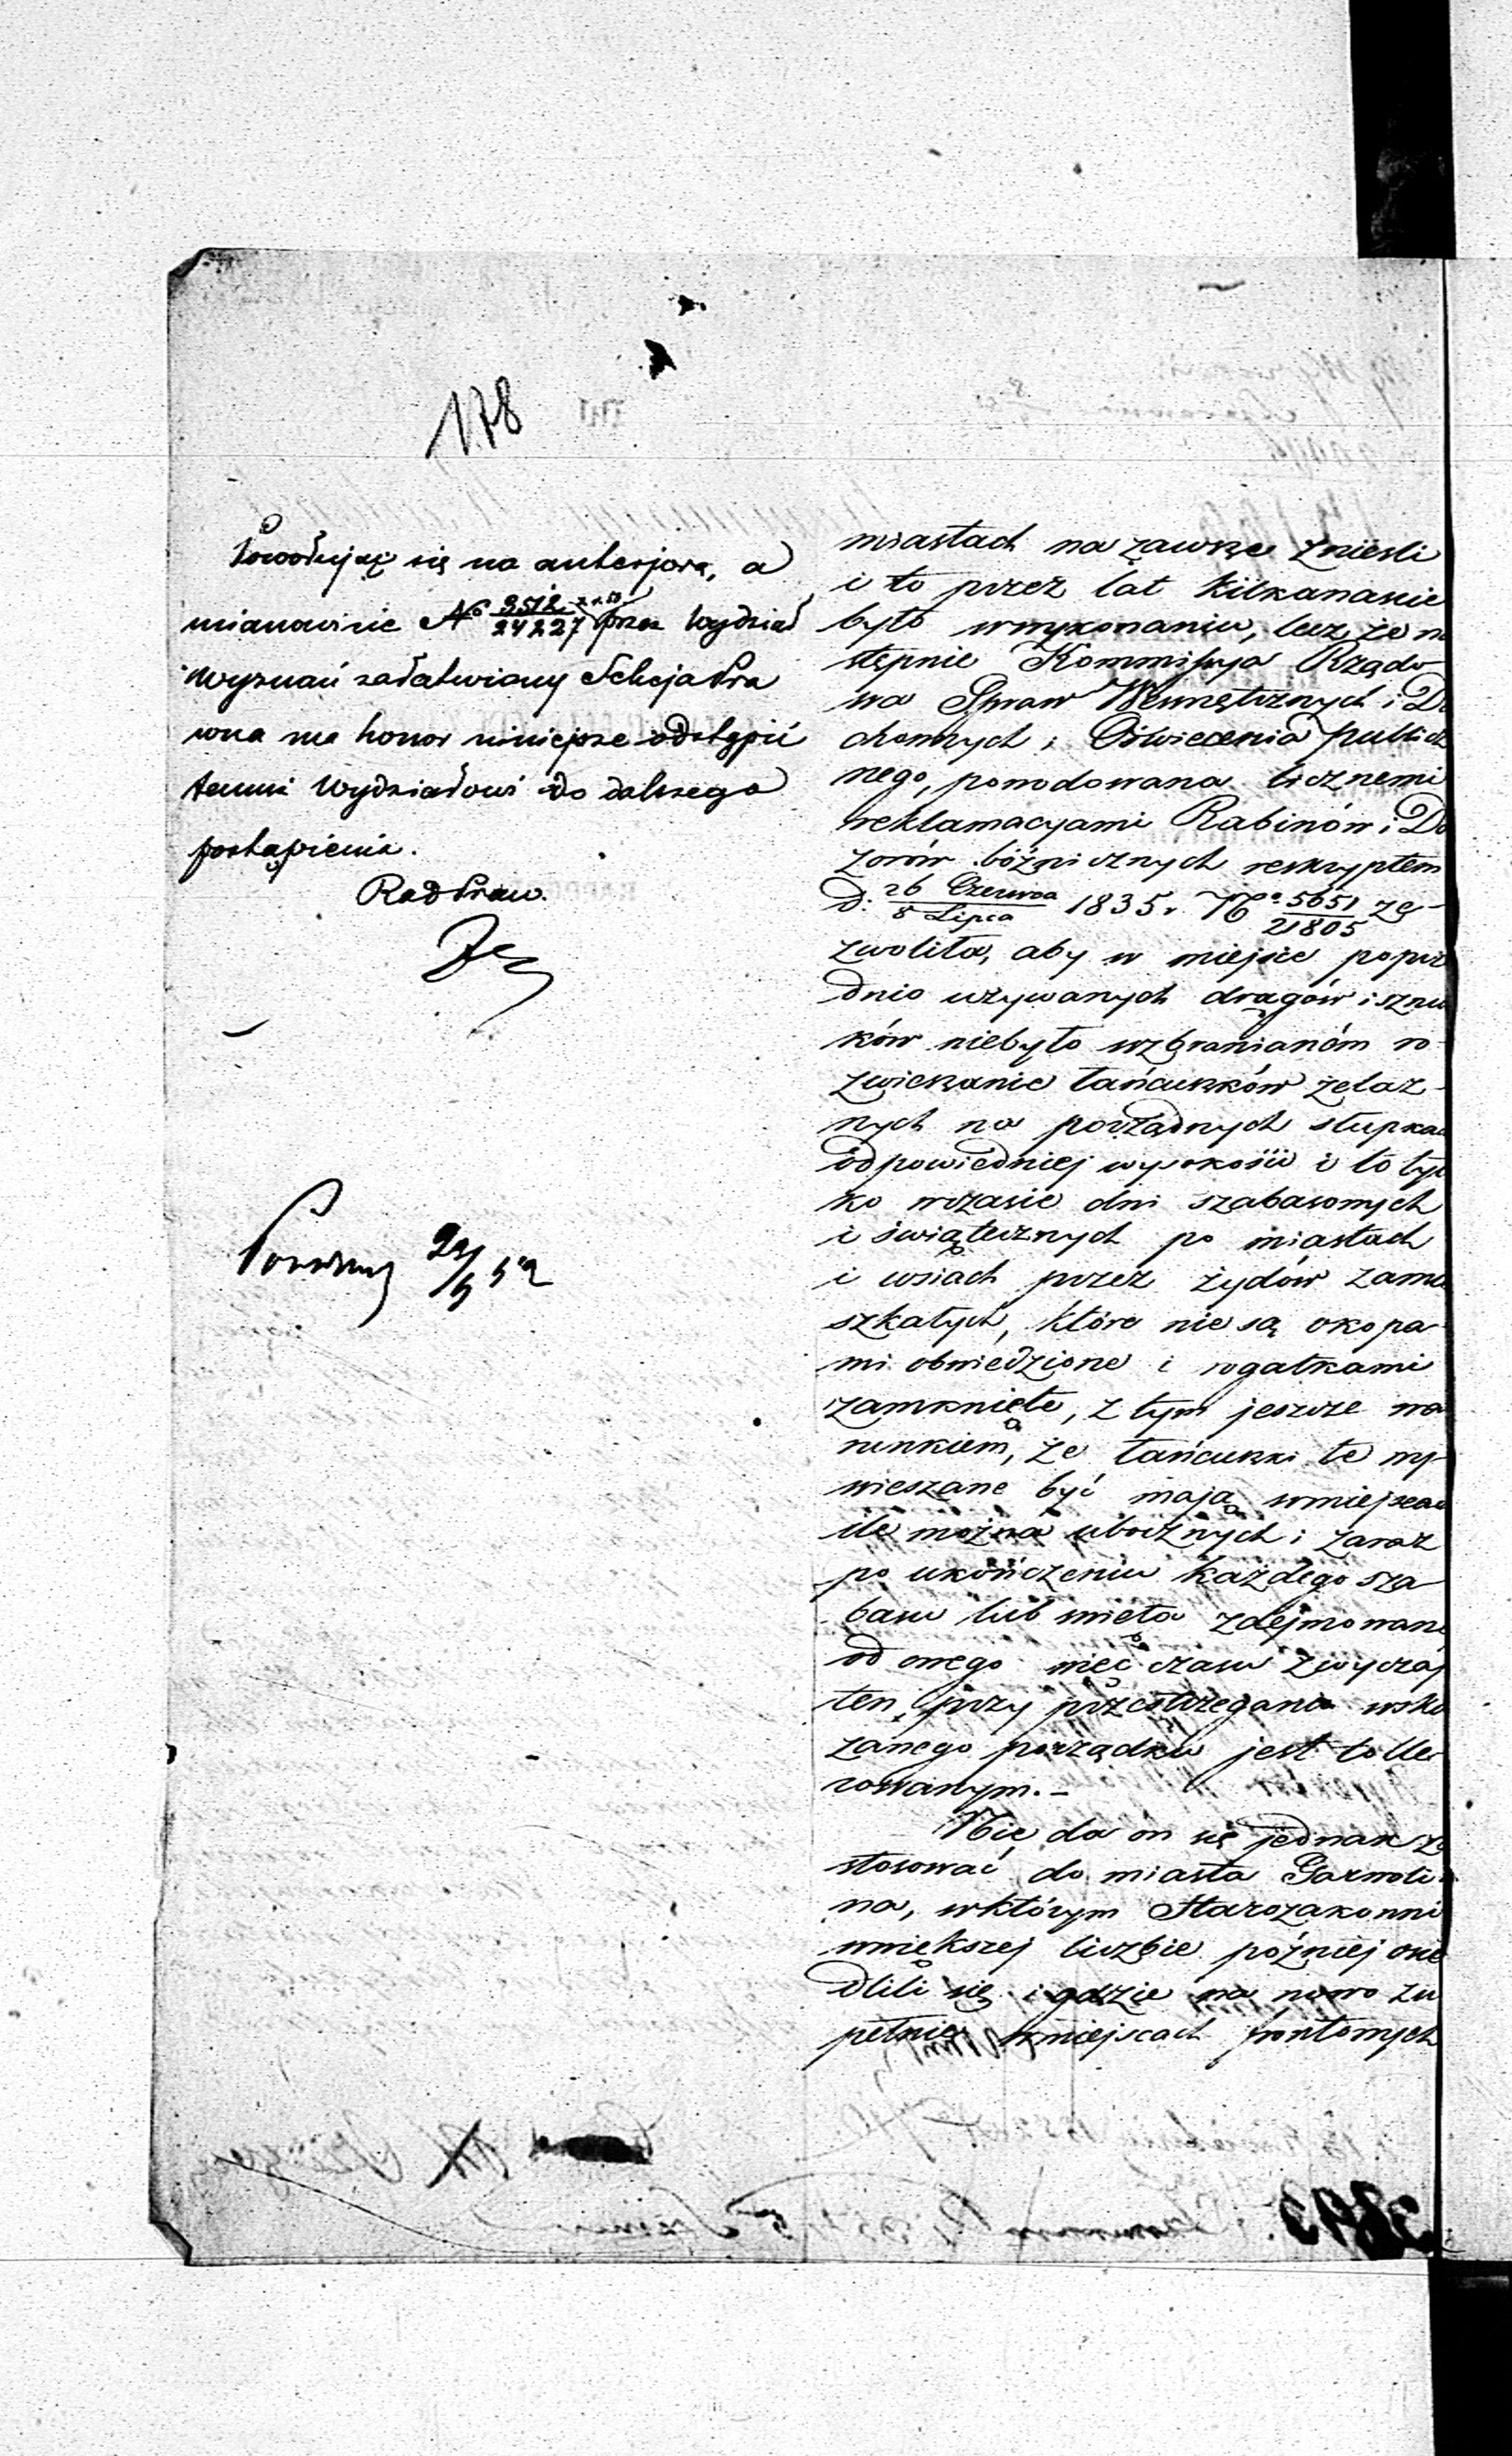 178
Powołując się na anterjora, a
mianowicie No 9512/24227 przez Wydział
Wyznań załatwiony Sekcja Pra
wna ma honor niniejsze odstąpić
temuż Wydziałowi do dalszego
postąpienia.
Rad Praw.
29/5 52
miastach na zawsze znieśli
i to przez lat kilkanaście
było wwykonaniu, lecz że na
stępnie Kommissya Rządo
wa Spraw Wewnętrznych i Du
chownych i Oświecenia publicz
nego, powodowana licznemi
reklamacyami Rabinów i Do
zorów bóżnicznych reskryptem
d: 26 Czerwca/8 Lipca 1835 r. No 5651/21805 ze-
zwoliła, aby w miejsce poprze
dnio używanych drągów i sznu
ków niebyło wzbranianém ro-
zwieszanie łańcuszków żelaz-
nych na porządnych słupkach
odpowiedniej wysokości i to tyl
ko wczasie dni szabasowych
i świątecznych po miastach
i wsiach przez żydów zamie
szkałych, które nie są okopa-
mi obwiedzione i rogatkami
zamknięte, z tym jeszcze wa
runkiem, że łańcuszki te wy-
wieszane być mają wmiejscach
ile można ubocznych i zaraz
po ukończeniu każdego sza-
basu lub święta zdejmowane
od owego więc czasu zwyczaj
ten, przy przestrzeganiu wska
zanego porządku jest tolle-
rowanym.-
Nie da on się jednak za
stosować do miasta Garwoli-
na, wktórym Starozakonni
wwiększej liczbie później osie
dlili się i gdzie na nowo zu
pełnie wmiejscach frontowych